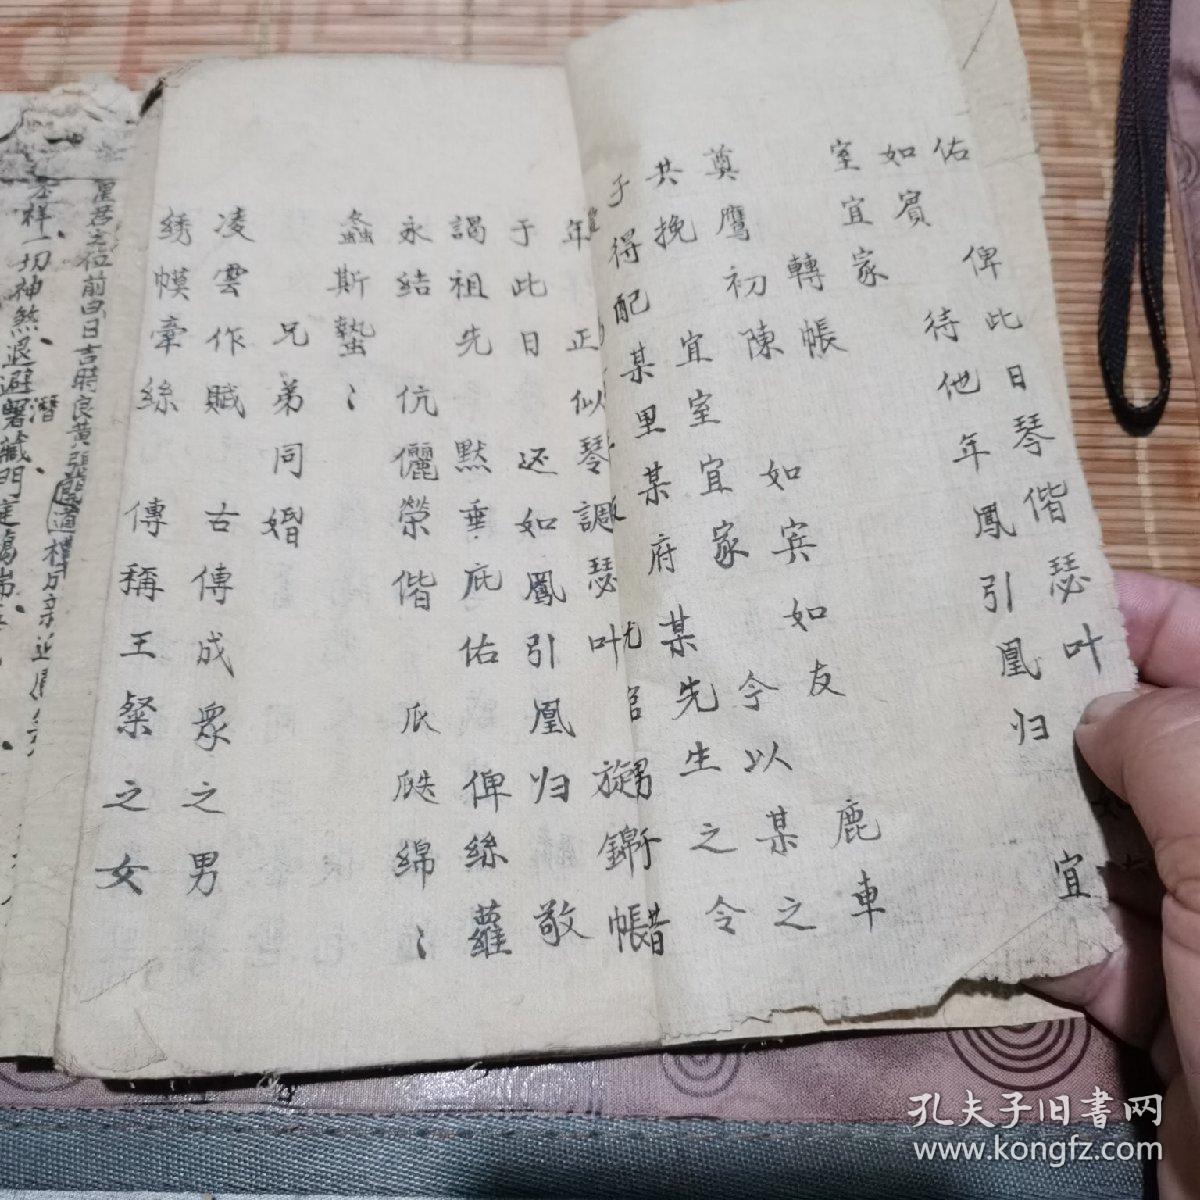 佑 俾此日琴偕瑟叶 宜
如賓 待他年鳳引凰归
室宜家 鹿車
轉帳 如宾如友
奠鴈初陳 今以某之
共挽 宜室宜家 令
于得配某里某府某先生之
年 正似琴調瑟叶 旋錦帳
于此日 还如鳳引凰归 敬
謁祖先 默垂庇佑 俾絲蘿
永結 伉儷榮偕 瓜瓞綿〻
螽斯蟄〻
兄弟同婚
凌雲作賦 古傳成眾之男
綉幙牽絲 傳稱王粲之女
星君之位前曰日吉時良黄張
一切神煞退避潛藏門庭
孔夫子旧书网
www.kongfz.com